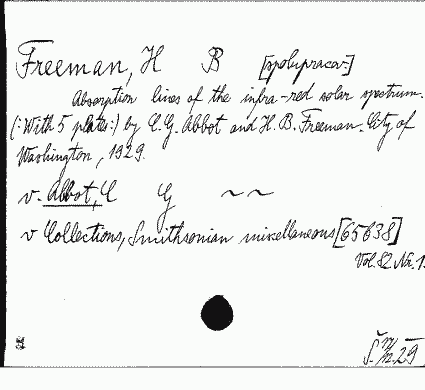 Freeman, H B [spolupracov.]
Absorption lines of the infra-red solar spectrum.
(:With 5 plates:) by C.G. Abbot and H.B. Freeman. City of
Washington, 1929.
v. Abbot, C G ~~
v Collections, Smithsonian miscellaneous [65638]
Vol. 82 Nr. 1.